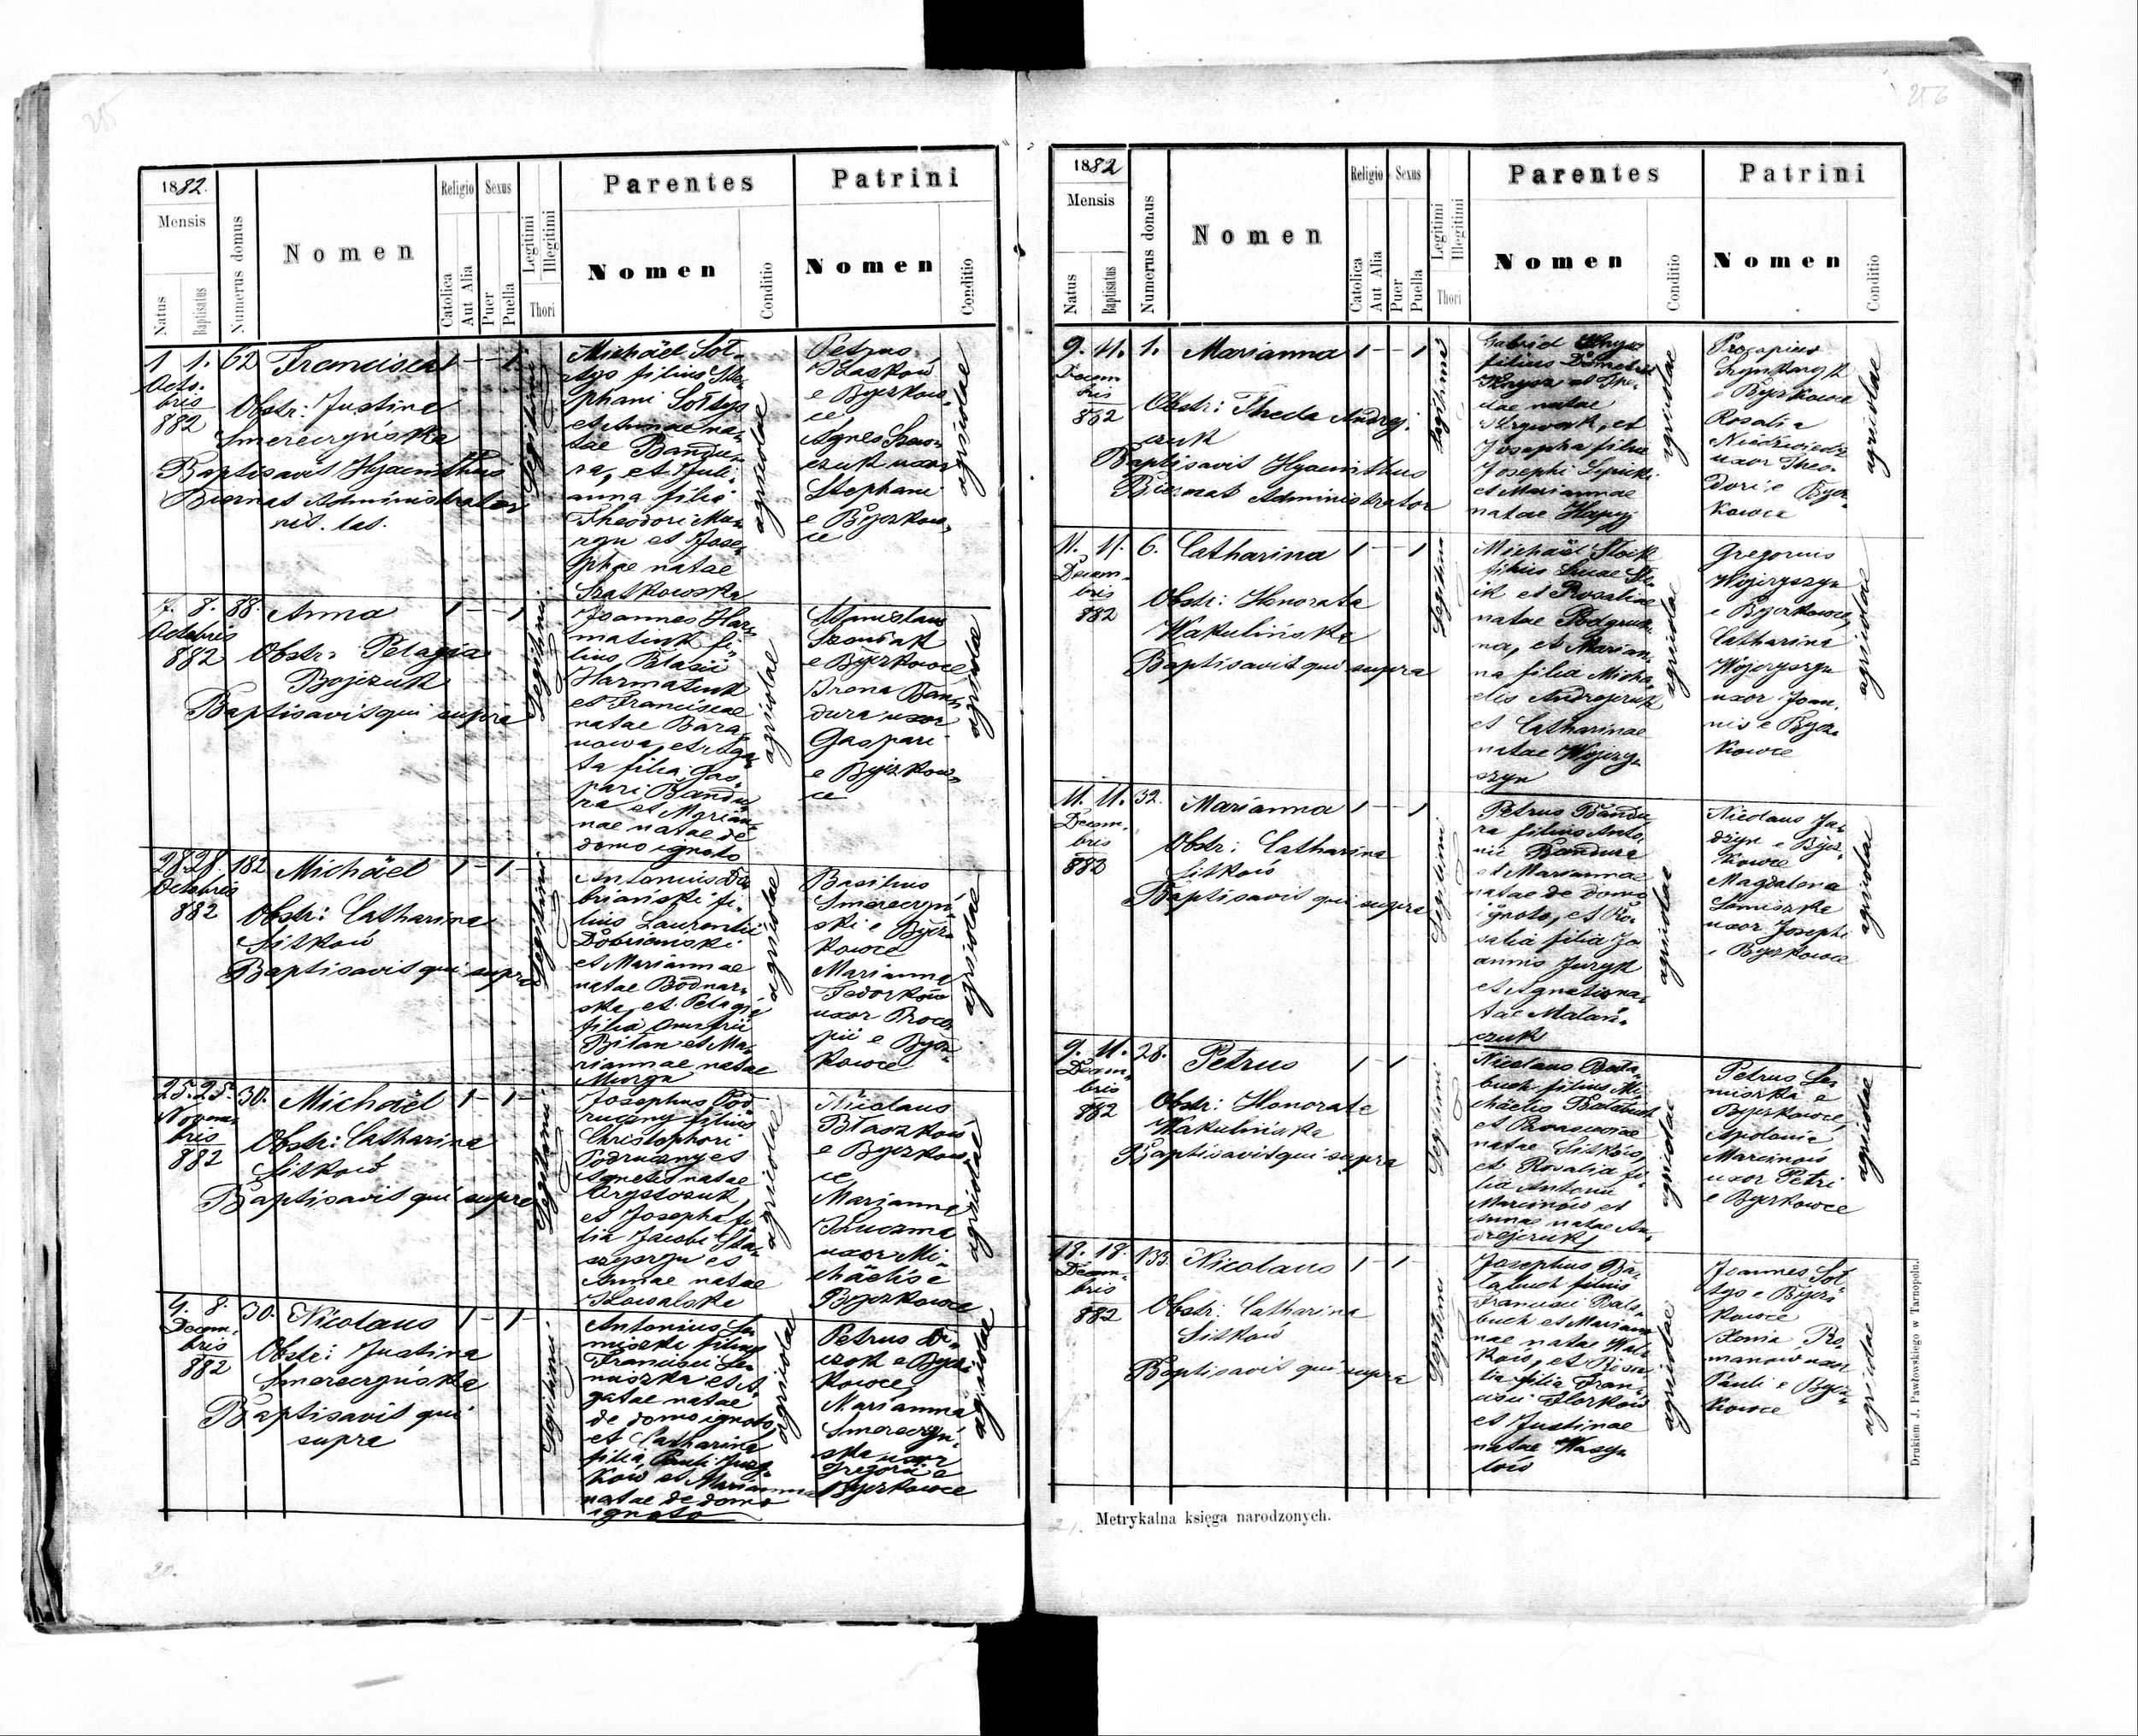 255
1882.
Mensis
Natus
Baptisatus
Numerus domus
Nomen
Religio
Catolica
Aut Alia
Sexus
Puer
Puella
Legitimi
Illegitimi
Thori
Parentes
Nomen
Conditio
Patrini
Nomen
Conditio
1 1. 62 Francisca 1 – – 1
Octo-
bris
882
Obstr: Justina
Smereczyńska
Baptisavit Hyacinthus
Biernat Administrator
rit. lat.
Legitimi
Michäel Soł-
tys filius Ste-
phani Sołtys
et Annae na-
tae Bandu-
ra, et Juli-
anna filia
Theodori Mu-
rgu et Jose-
phae natae
Szatkowska
agricolae
Petrus
e Byczkow-
ce
Agnes
uxor
Stephani
e Byczkow-
ce
agricolae
7. 8. 88. Anna 1 – – 1
Octobris
882
Obstr: Pelagia
Bojczuk
Baptisavit qui supra
Legitimi
Joannes Har-
matiuk fi-
lius Pelasii
Harmatiuk
et Franciscae
natae Bara-
nowa, et Aga-
ta filia Gas-
pari Bandu-
ra et Marian-
nae natae de
domo ignoto
agricolae
Stanislaus
e Byczkowce
Irena Ban-
dura uxor
Gaspari
e Byczkow-
ce
agricolae
28 28. 182 Michäel 1 – 1 –
Octobris
882
Obstr: Catharina
Sitków
Baptisavit qui supra
Legitimi
Antonius Do-
briański fi-
lius Laurentii
Dobriański
et Mariannae
natae Bodnar-
ska, et Pelagia
filia Onufrii
Bilan et Ma-
riannae natae
Murgu
agricolae
Basilius
Smereczyń-
ski e Bycz-
kowce
Marianna
Fedorków
uxor Proco-
pii e Bycz-
kowce
agricolae
25. 25. 30. Michäel 1 – 1 –
Novem-
bris
882
Obstr: Catharina
Sitków
Baptisavit qui supra
Legitimi
Josephus Pod-
ruczny filius
Christophori
Podruczny et
Agnetis natae
et Josepha fi-
lia Jacobi Sta-
et
Annae natae
Kowalska
agricolae
Nicolaus
Błaszków
e Byczkow-
ce
Marianna
Kuczma
uxor Mi-
chäelis e
Byczkowce
agricolae
4. 8. 30. Nicolaus 1 – 1 –
Decem-
bris
882
Obstr: Justina
Smereczyńska
Baptisavit qui
supra
Legitimi
Antonius Le-
miszka filius
Francisci Le-
miszka et A-
gatae natae
de domo ignoto,
et Catharina
filia Pauli
et Mariannae
natae de domo
ignoto
agricolae
Petrus
e Bycz-
kowce
Marianna
Smereczyń-
ska uxor
Gregorii e
Byczkowce
agricolae
20.
256
1882
Mensis
Natus
Baptisatus
Numerus domus
Nomen
Religio
Catolica
Aut Alia
Sexus
Puer
Puella
Legitimi
Illegitimi
Thori
Parentes
Nomen
Conditio
Patrini
Nomen
Conditio
9. 11. 1. Marianna 1 – – 1
Decem-
bris
882
Obstr: Thecla Andrej-
czuk
Baptisavit Hyacinthus
Biernat Administrator
Legitimi
Gabriel
filius Demetrii
et The-
clae natae
et
Josepha filia
Josephi Lipicki
et Mariannae
natae Hapij
agricolae
Procopius
e Byczkowce
Rosalia
Niedzwiedz
uxor Theo-
dori e Bycz-
kowce
agricolae
11. 11. 6. Catharina 1 – – 1
Decem-
bris
882
Obstr: Honorata
Wakulińska
Baptisavit qui supra
Legitimi
Michäel Stoik
filius Lucae Sto-
ik et Rosaliae
natae
et Marian-
na filia Micha-
elis Andrejczuk
et Catharinae
natae Wojczy-
szyn
agricolae
Gregorius
Wojczyszyn
e Byczkowce,
Catharina
Wojczyszyn
uxor Joan-
nis e Bycz-
kowce
agricolae
11. 11. 32. Marianna 1 – – 1
Decem-
bris
882
Obstr: Catharina
Sitków
Baptisavit qui supra
Legitimi
Petrus Bandu-
ra filius Anto-
nii Bandura
et Mariannae
natae de domo
ignoto, et Ro-
salia filia Jo-
annis Juryk
et Agnetis na-
tae Malań-
czuk
agricolae
Nicolaus
e Bycz-
kowce
Magdalena
Lemiszka
uxor Josephi
e Byczkowce
agricolae
9. 11. 28. Petrus 1 – 1 –
Decem-
bris
882
Obstr: Honorata
Wakulińska
Baptisavit qui supra
Legitimi
Nicolaus Bała-
buch filius Mi-
chäelis Bałabuch
et Parasceviae
natae Sitków,
et Rosalia fi-
lia Antonii
Marcinów et
Annae natae An-
drejczuk
agricolae
Petrus Le-
miszka e
Byczkowce,
Apolonia
Marcinów
uxor Petri
e Byczkowce
agricolae
18. 18. 133. Nicolaus 1 – 1 –
Decem-
bris
882
Obstr: Catharina
Sitków
Baptisavit qui supra
Legitimi
Josephus Ba-
łabuch filius
Francisci Bała-
buch et Marian-
nae natae
et Rosa-
lia filia Fran-
cisci Florków
et Justinae
natae Wasy-
lów
agricolae
Joannes Soł-
tys e Bycz-
kowce
Xenia Ro-
manów uxor
Pauli e Bycz-
kowce
agricolae
21.
Metrykalna księga narodzonych.
Drukiem J. Pawłowskiego w Tarnopolu.